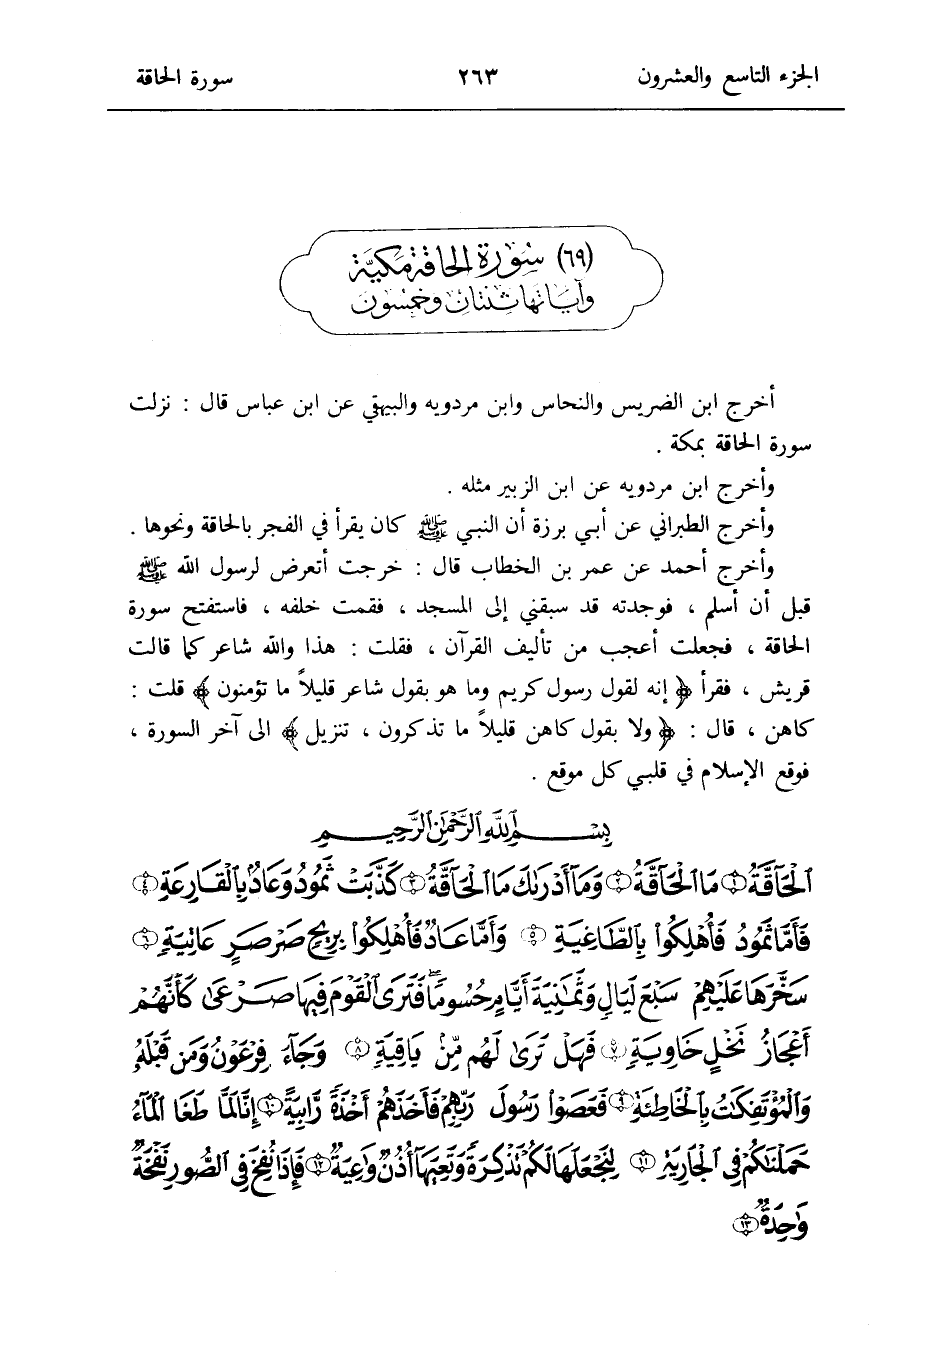 الجزء التاسع والعشرون ٢٦٣ سورة الحاقة
(٦٩) سُورَة الحَاقة مَكيَّة
وَآيَاتهَا ثِنتَانِ وَخَمسُون
أخرج ابن الضريس والنحاس وابن مردويه والبيهقي عن ابن عباس قال : نزلت
سورة الحاقة بمكة .
وأخرج ابن مردويه عن ابن الزبير مثله .
وأخرج الطبراني عن أبي برزة أن النبي ﷺ كان يقرأ في الفجر بالحاقة ونحوها .
وأخرج أحمد عن عمر بن الخطاب قال : خرجت أتعرض لرسول الله ﷺ
قبل أن أسلم ، فوجدته قد سبقني إلى المسجد ، فقمت خلفه ، فاستفتح سورة
الحاقة ، فجعلت أعجب من تأليف القرآن ، فقلت : هذا والله شاعر كما قالت
قريش ، فقرأ ﴿ إنه لقول رسول كريم وما هو بقول شاعر قليلاً ما تؤمنون ﴾ قلت :
كاهن ، قال : ﴿ ولا بقول كاهن قليلاً ما تذكرون ، تنزيل ﴾ الى آخر السورة ،
فوقع الإسلام في قلبي كل موقع .
بِسْمِ ٱللَّهِ ٱلرَّحْمَٰنِ ٱلرَّحِيمِ
ٱلْحَآقَّةُ ١ مَا ٱلْحَآقَّةُ ٢ وَمَآ أَدْرَىٰكَ مَا ٱلْحَآقَّةُ ٣ كَذَّبَتْ ثَمُودُ وَعَادٌۢ بِٱلْقَارِعَةِ ٤
فَأَمَّا ثَمُودُ فَأُهْلِكُوا۟ بِٱلطَّاغِيَةِ ٥ وَأَمَّا عَادٌ فَأُهْلِكُوا۟ بِرِيحٍ صَرْصَرٍ عَاتِيَةٍ ٦
سَخَّرَهَا عَلَيْهِمْ سَبْعَ لَيَالٍ وَثَمَٰنِيَةَ أَيَّامٍ حُسُومًا ۖ فَتَرَى ٱلْقَوْمَ فِيهَا صَرْعَىٰ كَأَنَّهُمْ
أَعْجَازُ نَخْلٍ خَاوِيَةٍ ٧ فَهَلْ تَرَىٰ لَهُم مِّنۢ بَاقِيَةٍ ٨ وَجَآءَ فِرْعَوْنُ وَمَن قَبْلَهُۥ
وَٱلْمُؤْتَفِكَٰتُ بِٱلْخَاطِئَةِ ٩ فَعَصَوْا۟ رَسُولَ رَبِّهِمْ فَأَخَذَهُمْ أَخْذَةً رَّابِيَةً ١٠ إِنَّا لَمَّا طَغَا ٱلْمَآءُ
حَمَلْنَٰكُمْ فِى ٱلْجَارِيَةِ ١١ لِنَجْعَلَهَا لَكُمْ تَذْكِرَةً وَتَعِيَهَآ أُذُنٌ وَٰعِيَةٌ ١٢ فَإِذَا نُفِخَ فِى ٱلصُّورِ نَفْخَةٌ
وَٰحِدَةٌ ١٣